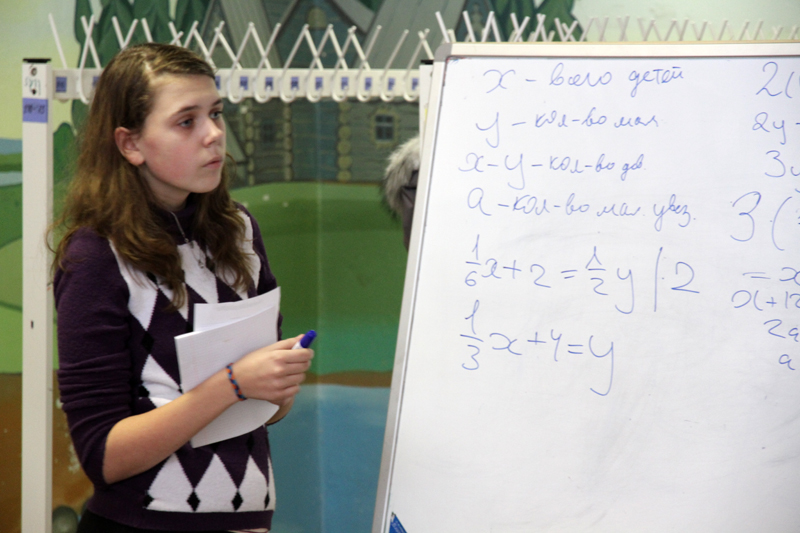 x - всего детей
y - кол-во мал
x-y-кол-во дев.
a-кол-во мал. увез.
1/6 x + 2 = 1/2 y | · 2
1/3 x + 4 = y
2(
2y -
3
3(
= x
x+12
2a
a